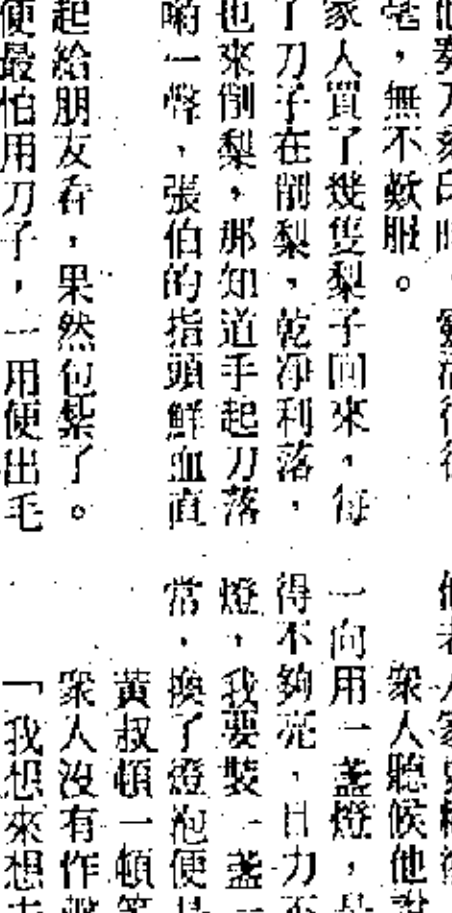 毫，無不歎服。
家人買了幾隻梨子回來，每
了刀子在削梨，乾淨利落，
也來削梨，那知道手起刀落
喲一聲，張伯的指頭鮮血直
起給朋友看，果然包紮了。
便最怕用刀子，一用便出毛
眾人聽候他說
一向用一盞燈，
得不夠亮，目力不
燈，我要裝一盞一
常，換了燈泡便
黃叔頓一頓
眾人沒有作聲
「我想來想去